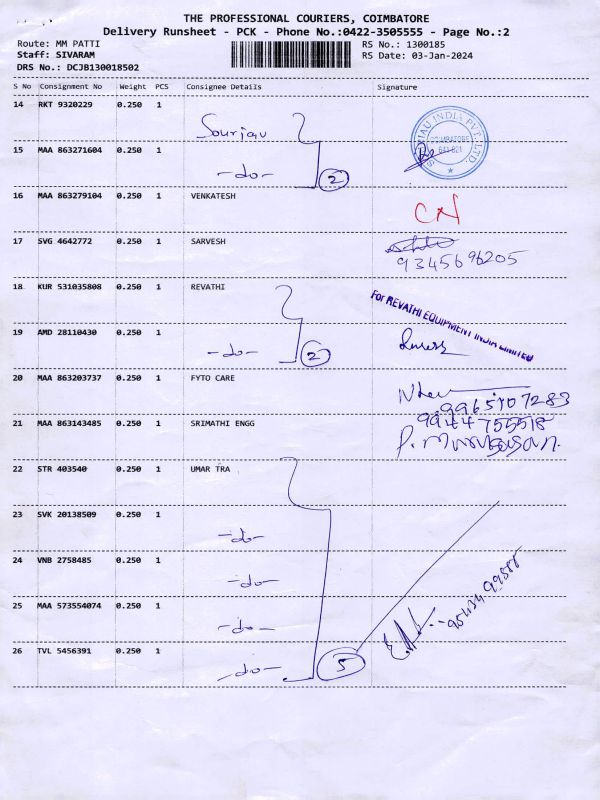 THE PROFESSIONAL COURIERS, COIMBATORE
Delivery Runsheet - PCK - Phone No.:0422-3505555 - Page No.:2
Route: MM PATTI RS No.: 1300185
Staff: SIVARAM RS Date: 03-Jan-2024
DRS No.: DCJB130018502
S No Consignment No Weight PCS Consignee Details Signature
14 RKT 9320229 0.250 1
15 MAA 863271604 0.250 1 -do- 2
COIMBATORE
641 021
16 MAA 863279104 0.250 1 VENKATESH
17 SVG 4642772 0.250 1 SARVESH
9345696205
18 KUR 531035808 0.250 1 REVATHI
For REVATHI EQUIPMENT INDIA LIMITED
19 AMD 28110430 0.250 1 -do- 2
20 MAA 863203737 0.250 1 FYTO CARE
9965107283
21 MAA 863143485 0.250 1 SRIMATHI ENGG
9944755518
P. Murugesan.
22 STR 403540 0.250 1 UMAR TRA
23 SVK 20138509 0.250 1 -do-
24 VNB 2758485 0.250 1 -do-
25 MAA 573554074 0.250 1 -do-
26 TVL 5456391 0.250 1 -do- 5